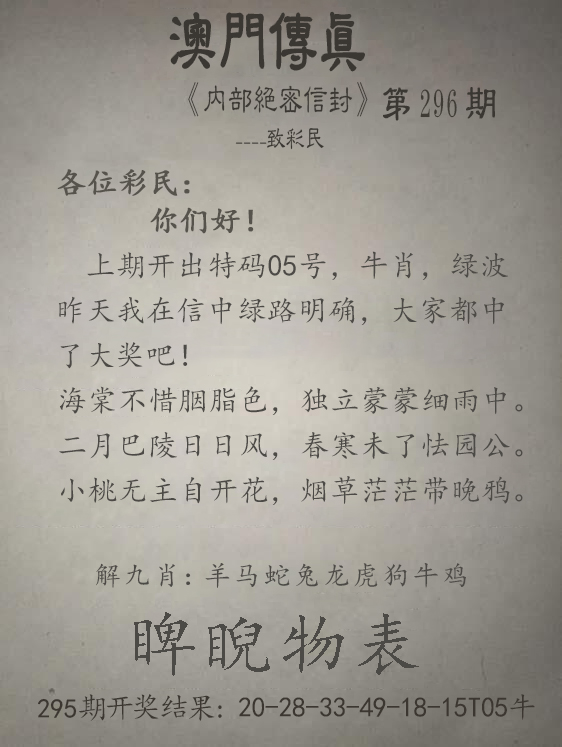 澳門傳眞
《内部絕密信封》第296期
----致彩民
各位彩民：
你们好！
上期开出特码05号，牛肖，绿波
昨天我在信中绿路明确，大家都中
了大奖吧！
海棠不惜胭脂色，独立蒙蒙细雨中。
二月巴陵日日风，春寒未了怯园公。
小桃无主自开花，烟草茫茫带晚鸦。
解九肖：羊马蛇兔龙虎狗牛鸡
睥睨物表
295期开奖结果：20-28-33-49-18-15T05牛